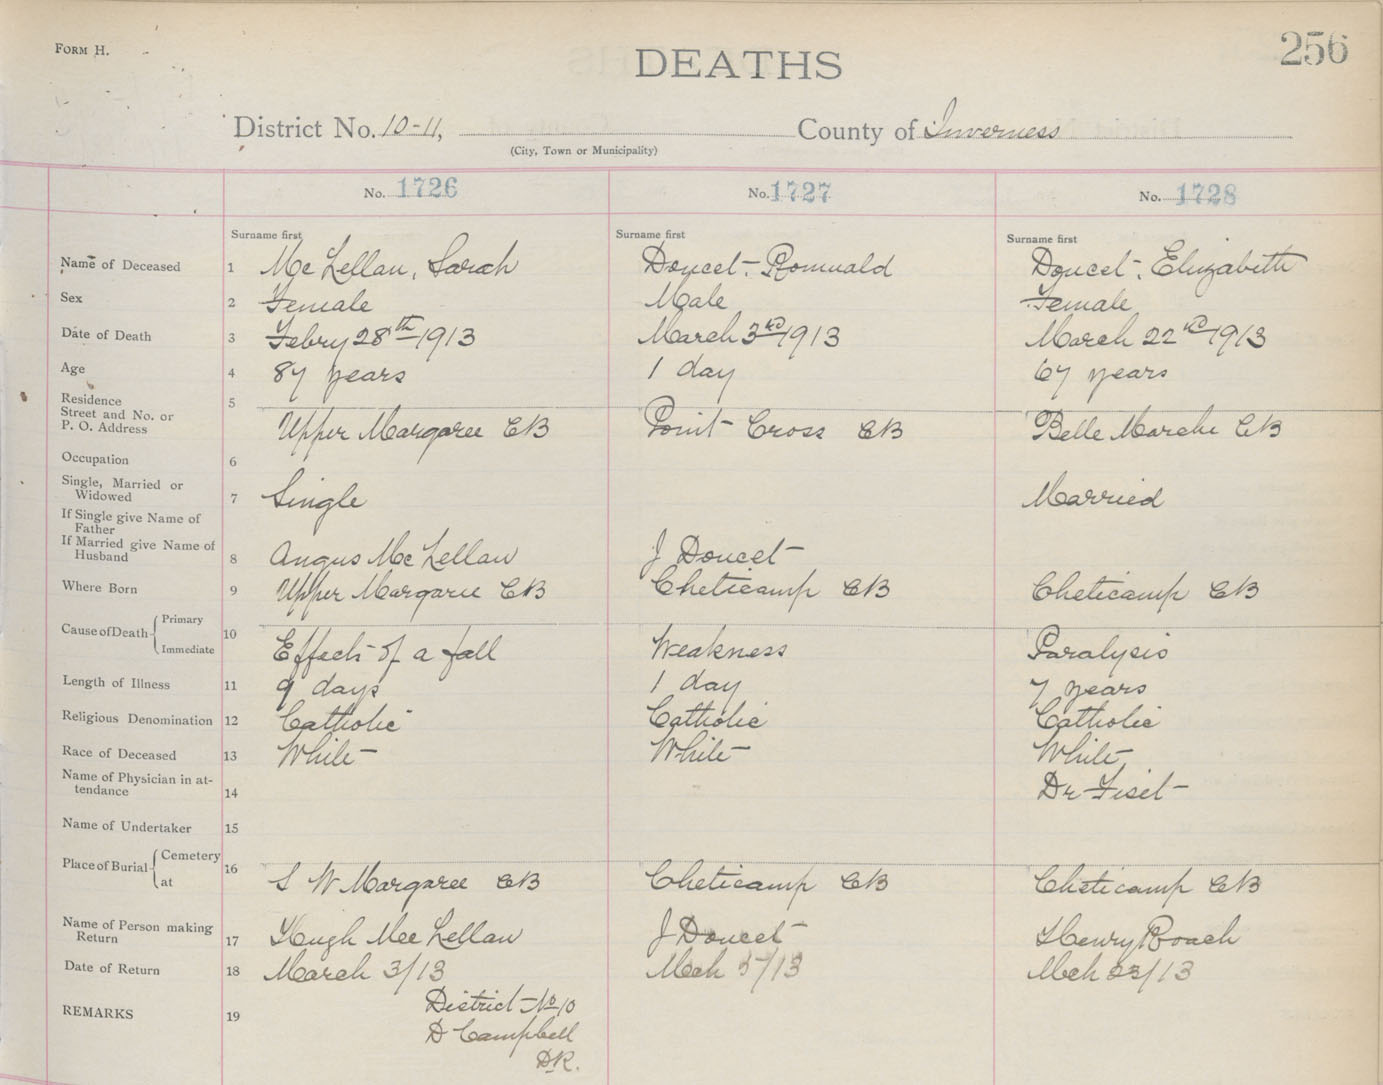 FORM H.
DEATHS
256
District No. 10-11, County of Inverness
(City, Town or Municipality)
No. 1726 No. 1727 No. 1728
Surname first Surname first Surname first
Name of Deceased 1 McLellan, Sarah Doucet, Romuald Doucet, Elizabeth
Sex 2 Female Male Female
Date of Death 3 Febry 28th 1913 March 3rd 1913 March 22nd 1913
Age 4 87 years 1 day 67 years
Residence 5
Street and No. or
P. O. Address Upper Margaree CB Point Cross CB Belle Marche CB
Occupation 6
Single, Married or
Widowed 7 Single Married
If Single give Name of
Father
If Married give Name of
Husband 8 Angus McLellan J Doucet
Where Born 9 Upper Margaree CB Cheticamp CB Cheticamp CB
Cause of Death Primary 10
Immediate Effects of a fall Weakness Paralysis
Length of Illness 11 9 days 1 day 7 years
Religious Denomination 12 Catholic Catholic Catholic
Race of Deceased 13 White White White
Name of Physician in at-
tendance 14 Dr Fiset
Name of Undertaker 15
Place of Burial Cemetery 16
at S W Margaree CB Cheticamp CB Cheticamp CB
Name of Person making
Return 17 Hugh McLellan J Doucet Henry Roach
Date of Return 18 March 3/13 Mch 5/13 Mch 23/13
REMARKS 19 District No 10
D Campbell
DR.